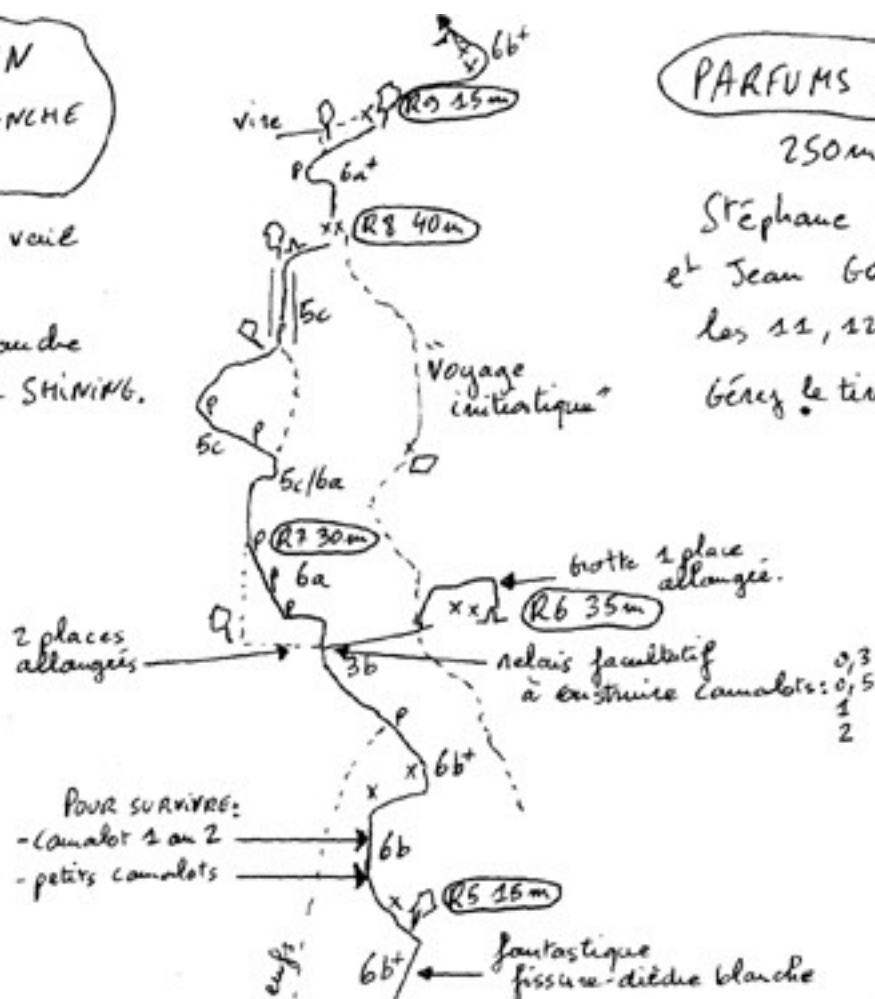 N
NCHE
vail
auche
SHINING.
6b+
R9 15m
vire
P
6a+
xx
R8 40m
5c
"Voyage
initiatique"
P
P
5c
5c/6a
P
R7 30m
P
6a
P
grotte 1 place
allongée.
xx
R6 35m
2 places
allongées
3b
relais facultatif
à construire camalots: 0,3
0,5
1
2
P
x
6b+
x
POUR SURVIVRE:
- camalot 1 ou 2
- petits camalots
6b
x
R5 15m
6b+
fantastique
fissure-dièdre blanche
PARFUMS
250m
Stéphane
et Jean GO
les 11, 12
Gérez le tir